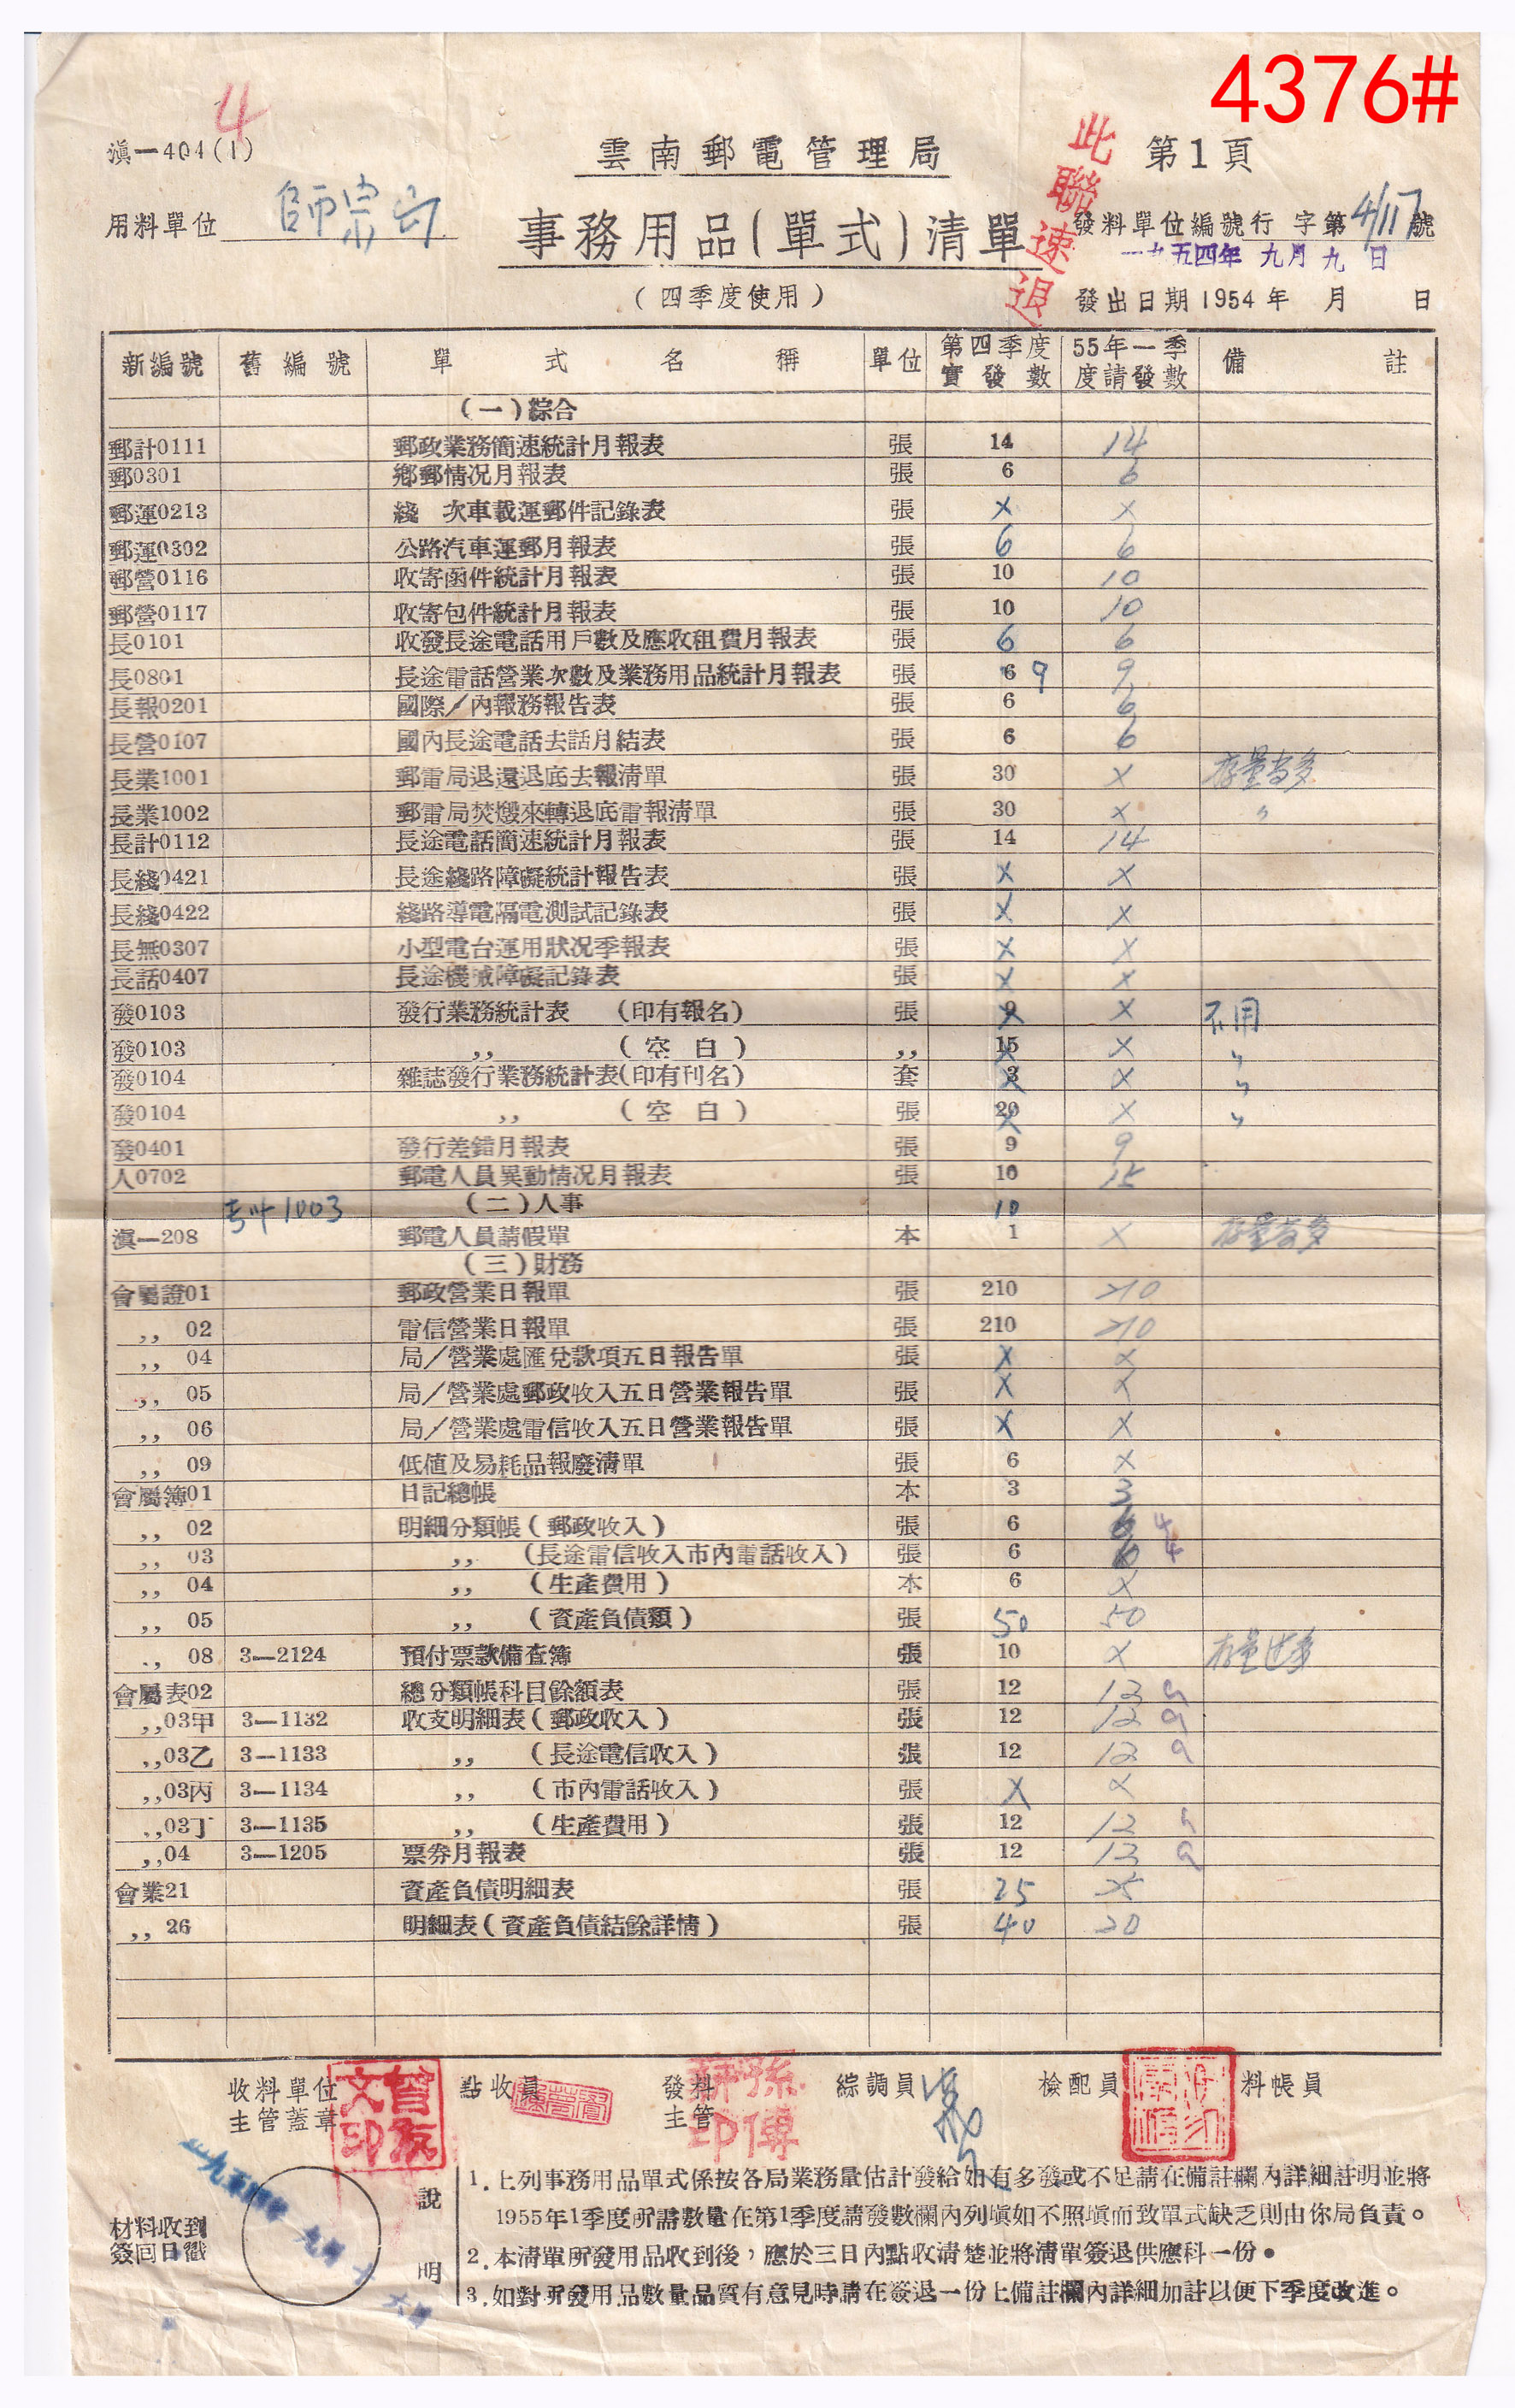 4376#
4
滇一404(1)
雲南郵電管理局
第1頁
此聯速退
用料單位 師宗局
事務用品(單式)清單
發料單位編號行 字第4/117號
一九五四年 九月 九 日
(四季度使用)
發出日期1954年 月 日
新編號 舊編號 單式名稱 單位 第四季度實發數 55年一季度請發數 備註
(一)綜合
郵計0111 郵政業務簡速統計月報表 張 14 14
郵0301 鄉郵情况月報表 張 6 6
郵運0213 綫 次車載運郵件記錄表 張 × ×
郵運0302 公路汽車運郵月報表 張 6 6
郵營0116 收寄函件統計月報表 張 10 10
郵營0117 收寄包件統計月報表 張 10 10
長0101 收發長途電話用戶數及應收租費月報表 張 6 6
長0801 長途電話營業次數及業務用品統計月報表 張 6 9 9
長報0201 國際/內報務報告表 張 6 6
長營0107 國內長途電話去話月結表 張 6 6
長業1001 郵電局退還退底去報清單 張 30 × 存量尚多
長業1002 郵電局焚燬來轉退底電報清單 張 30 × 〃
長計0112 長途電話簡速統計月報表 張 14 14
長綫0421 長途綫路障礙統計報告表 張 × ×
長綫0422 綫路導電隔電測試記錄表 張 × ×
長無0307 小型電台運用狀况季報表 張 × ×
長話0407 長途機械障礙記錄表 張 × ×
發0103 發行業務統計表 (印有報名) 張 9 × 不用
發0103 ,, (空白) ,, 15 × 〃
發0104 雜誌發行業務統計表(印有刊名) 套 3 × 〃
發0104 ,, (空白) 張 20 × 〃
發0401 發行差錯月報表 張 9 9
人0702 郵電人員異動情况月報表 張 10 15
1003 (二)人事 10
滇一208 郵電人員請假單 本 1 × 存量尚多
(三)財務
會屬證01 郵政營業日報單 張 210 210
,, 02 電信營業日報單 張 210 210
,, 04 局/營業處匯兌款項五日報告單 張 × ×
,, 05 局/營業處郵政收入五日營業報告單 張 × ×
,, 06 局/營業處電信收入五日營業報告單 張 × ×
,, 09 低值及易耗品報廢清單 張 6 ×
會屬簿01 日記總帳 本 3 3
,, 02 明細分類帳(郵政收入) 張 6 6 4
,, 03 ,, (長途電信收入市內電話收入) 張 6 6 4
,, 04 ,, (生產費用) 本 6 ×
,, 05 ,, (資產負債類) 張 50 50
,, 08 3—2124 預付票款備查簿 張 10 × 存量过多
會屬表02 總分類帳科目餘額表 張 12 12 9
,,03甲 3—1132 收支明細表(郵政收入) 張 12 12 9
,,03乙 3—1133 ,, (長途電信收入) 張 12 12 9
,,03丙 3—1134 ,, (市內電話收入) 張 × ×
,,03丁 3—1135 ,, (生產費用) 張 12 12 9
,,04 3—1205 票券月報表 張 12 12 9
會業21 資產負債明細表 張 25 25
,, 26 明細表(資產負債結餘詳情) 張 40 20
收料單位主管蓋章 點收員 發料主管 綜調員 檢配員 料帳員
材料收到簽回日戳
一九五四年 九月 十 六日
說明
1. 上列事務用品單式係按各局業務量估計發給如有多發或不足請在備註欄內詳細註明並將
1955年1季度所需數量在第1季度請發數欄內列塡如不照塡而致單式缺乏則由你局負責。
2. 本清單所發用品收到後，應於三日內點收清楚並將清單簽退供應科一份。
3. 如對所發用品數量品質有意見時請在簽退一份上備註欄內詳細加註以便下季度改進。